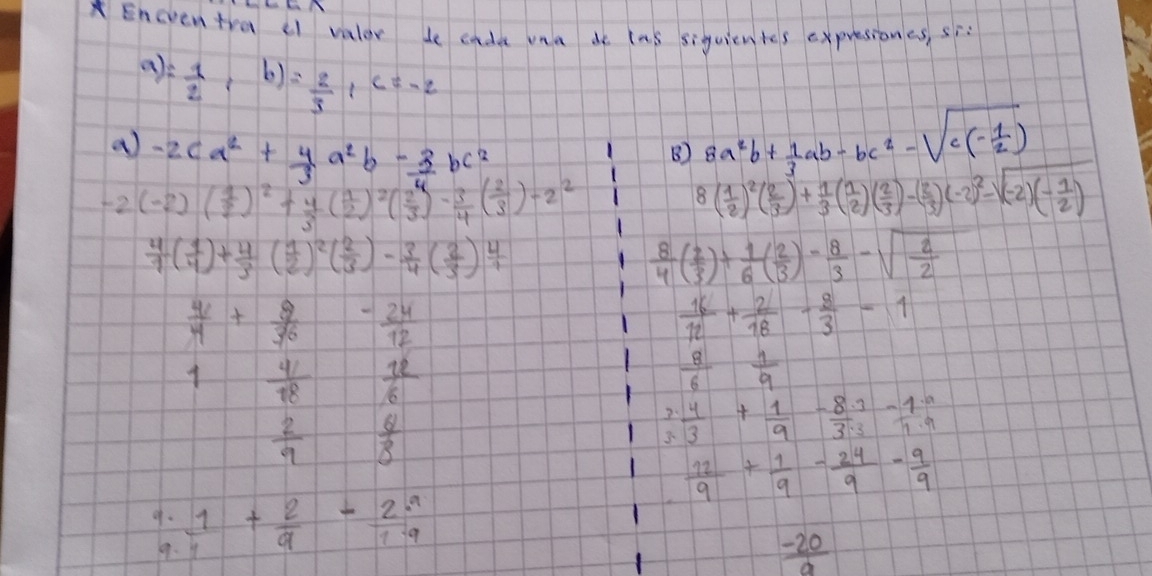 * Encuentra el valor de cada una de las siguientes expresiones, si:
a)=1/2, b)=2/3, c=-2
a) -2ca² + 4/3 a²b - 3/4 bc²
-2(-2)(1/2)² + 4/3(1/2)²(2/3) - 3/4(2/3)-2²
4/1(1/4)+4/3(1/2)²(2/3) - 3/4(2/3)4/1
4/4 + 8/36 - 24/12
1 4/18 12/6
2/9 6/3
9·1/9·1 + 2/9 - 2·9/1·9
B) 8a²b + 1/3ab - bc² - √c(-1/2)
8(1/2)²(2/3)+1/3(1/2)(2/3)-(2/3)(-2)²-√(-2)(-1/2)
8/4(2/3)+1/6(2/3)-8/3-√2/2
16/12 + 2/18 - 8/3 - 1
8/6 1/9
3·4/3·3 + 1/9 - 8·3/3·3 - 1·9/1·9
12/9 + 1/9 - 24/9 - 9/9
-20/9